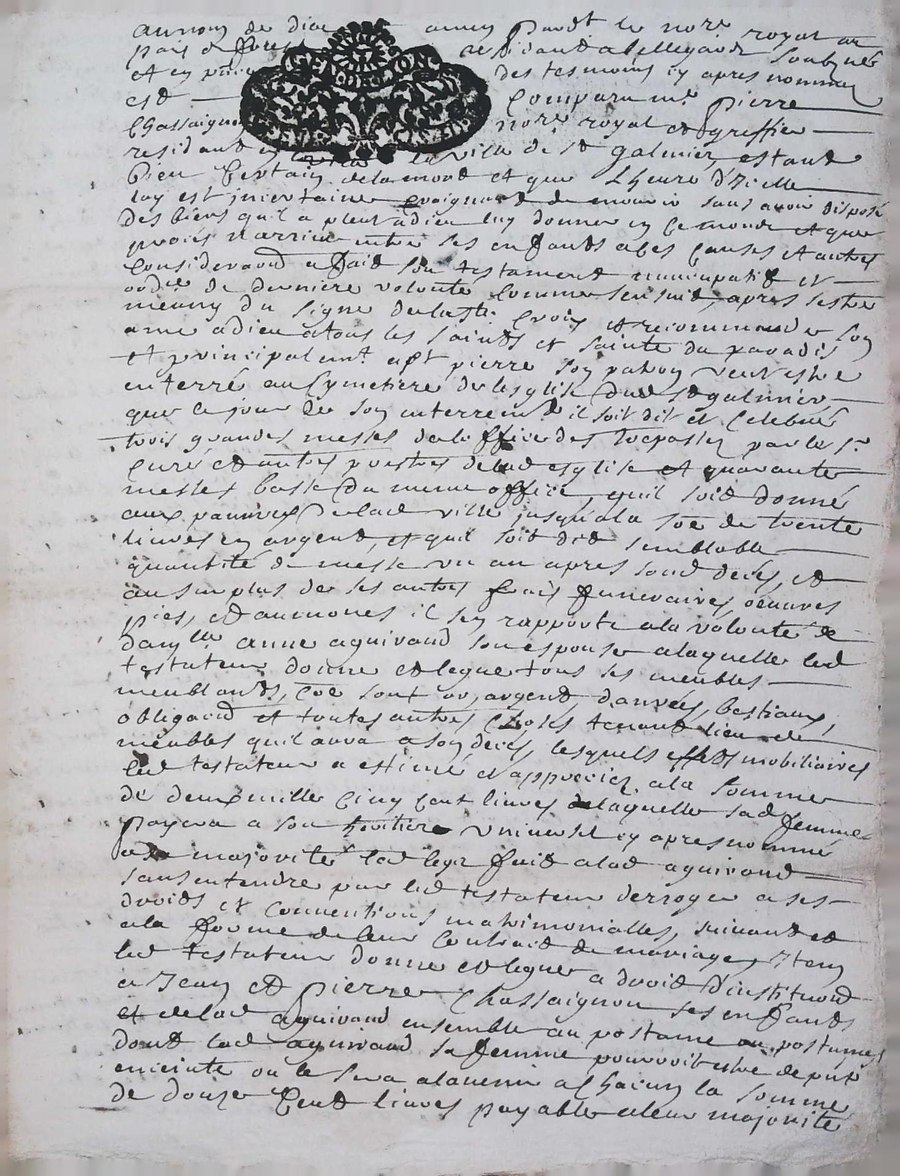 au nom de dieu amen pardt le nore royal au
pais de forest residant a bellegarde soubzné
et en pñce des tesmoins cy apres nommez
est comparu me pierre
Chassaignon nore royal et greffier
residant en la ville de st galmier, estant
bien certain de la mort et que lheure dicelle
luy est incertaine craignant de mourir sans avoir disposé
des biens quil a pleu a dieu luy donner en ce monde et que
procés narrive entre ses enfands a ces causes et autres
considerand a faid son testament nuncupatif et
ordre de derniere volonté comme sensuit, apres sestre
meuny du signe de la ste croix et recommandé son
ame a dieu a tous les saints et sainte du paradis
et principalemt a st pierre son patron veut estre
enterré au cymetiere de lesglise dud st galmier
que ce jour de son enterremt il soit dit et celebré
trois grandes messes de loffice des trepassez par le sr
curé et autres prestres de lad esglise et quarante
messes basse du meme office, quil soit donné
aux pauvres de lad ville jusqua la soe de trente
livres en argent, et quil soit dit semblable
quantité de messe un an apres sond decés, et
au surplus de ses autres frais funeraires, oeuvres
pies, et aumones il sen rapporte a la volonté de
damlle anne aquirand son espouse a laquelle led
testateur donne et legue tous ses meubles
meublands, coe sont or, argent, danrées, bestiaux,
obligaõn et toutes autres choses tenant lieu de
meubles quil aura a son deces, lesquels effets mobiliaires
led testateur a estimé et apprecier a la somme
de deux mille cinq cent livres de laquelle sad femme
payera a son heritiere universel cy apres nommé
a sa majorité led legs faid a lad aquirand
sans entendre par led testateur derroger a ses
droits et conventions matrimonialles, suivant et
a la forme de leur contract de mariage, Item
led testateur donne et legue a droit dinstituõn
a Jean et pierre Chassaignon ses enfands
et de lad aquirand ensemble au postume ou postumes
dont lad aquirand sa femme pourroit estre de pñt
enceinte ou le sera a lavenir a chacun la somme
de douze cent livres payable a leur majorité